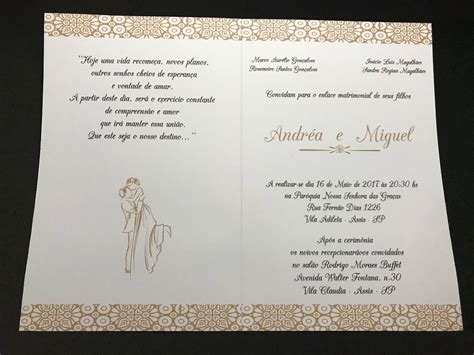 “Hoje uma vida recomeça, novos planos,
outros sonhos cheios de esperança
e vontade de amar.
A partir deste dia, será o exercício constante
de compreensão e amor
que irá manter essa união.
Que este seja o nosso destino...”
Marco Aurélio Gonçalves
Rosemeire Santos Gonçalves
Inácio Luis Magalhães
Sandra Regina Magalhães
Convidam para o enlace matrimonial de seus filhos
Andréa e Miguel
A realizar-se dia 16 de Maio de 2017 às 20:30 hs
na Paróquia Nossa Senhora das Graças
Rua Fernão Dias 1226
Vila Adileta - Assis - SP
Após a cerimônia
os noivos recepcionarão os convidados
no salão Rodrigo Moraes Buffet
Avenida Walter Fontana, n.30
Vila Claudia - Assis - SP